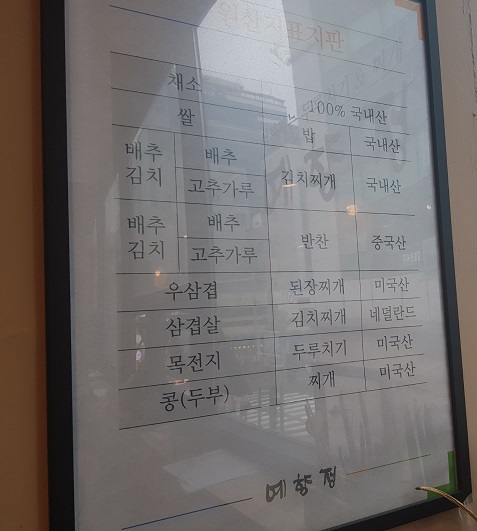 원산지표지판
채소 100% 국내산
쌀 밥 국내산
배추김치 배추 고추가루 김치찌개 국내산
배추김치 배추 고추가루 반찬 중국산
우삼겹 된장찌개 미국산
삼겹살 김치찌개 네덜란드
목전지 두루치기 미국산
콩(두부) 찌개 미국산
메향점